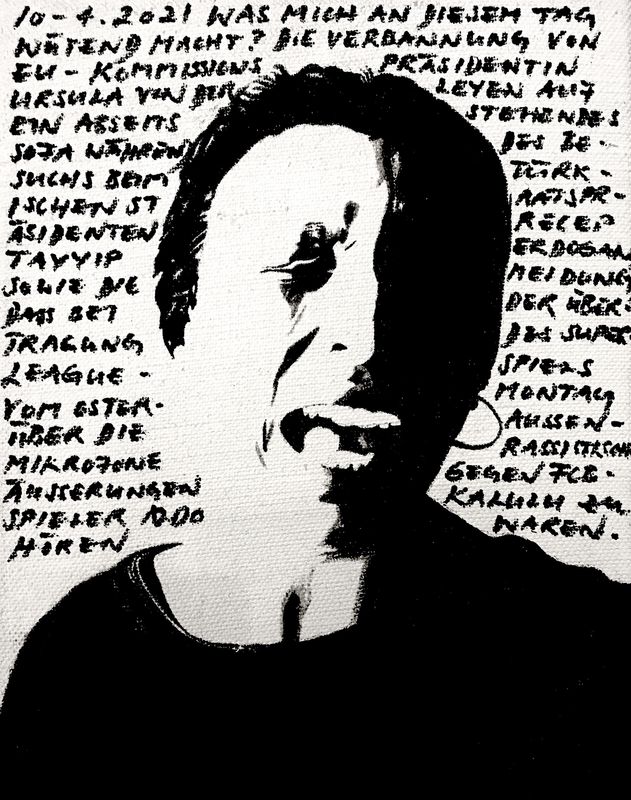 10-4.2021 WAS MICH AN DIESEM TAG
WÜTEND MACHT? DIE VERBANNUNG VON
EU-KOMMISSIONS PRÄSIDENTIN
URSULA VON DER LEYEN AUF
EIN ABSEITS STEHENDES
SOFA WÄHREN DES BE-
SUCHS BEIM TÜRK-
ISCHEN ST AATSPR-
ÄSIDENTEN RECEP
TAYYIP ERDOGAN
SOWIE DIE MELDUNG
DASS BEI DER ÜBER-
TRAGUNG DES SUPER-
LEAGUE - SPIELS
VOM OSTER- MONTAG
ÜBER DIE AUSSEN-
MIKROFONE RASSISTISCHE
ÄUSSERUNGEN GEGEN FCB-
SPIELER ALDO KALULU ZU
HÖREN WAREN.